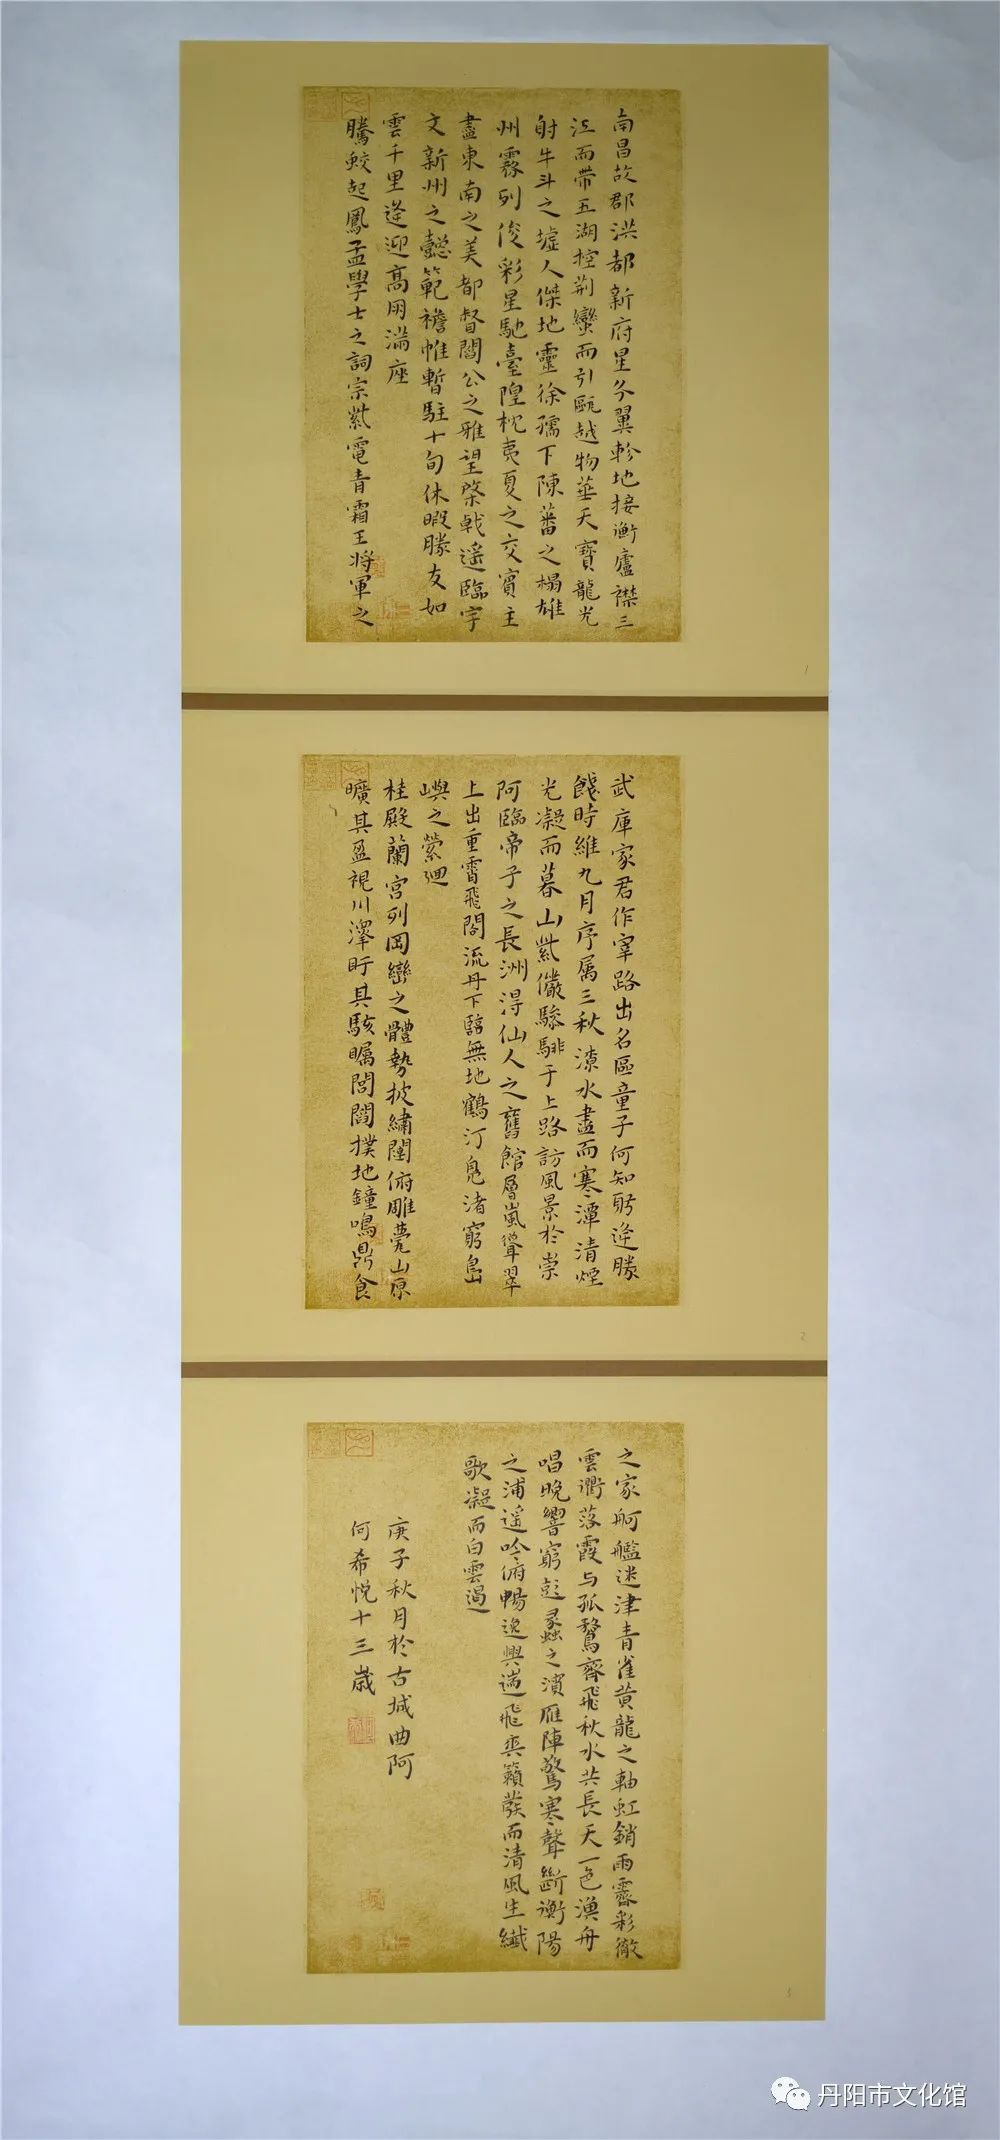 南昌故郡洪都新府星分翼軫地接衡廬襟三
江而帶五湖控荆蠻而引甌越物華天寶龍光
射牛斗之墟人傑地靈徐孺下陳蕃之榻雄
州霧列俊彩星馳臺隍枕夷夏之交賓主
盡東南之美都督閻公之雅望棨戟遥臨宇
文新州之懿範襜帷暫駐十旬休暇勝友如
雲千里逢迎高朋滿座
騰蛟起鳳孟學士之詞宗紫電青霜王將軍之
1
武庫家君作宰路出名區童子何知躬逢勝
餞時維九月序属三秋潦水盡而寒潭清煙
光凝而暮山紫儼驂騑于上路訪風景於崇
阿臨帝子之長洲得仙人之舊館層嵐聳翠
上出重霄飛閣流丹下臨無地鶴汀鳧渚窮島
嶼之縈迴
桂殿蘭宫列岡巒之體勢披繡闥俯雕甍山原
曠其盈視川澤盱其駭矚閭閻撲地鐘鳴鼎食
2
之家舸艦迷津青雀黄龍之軸虹銷雨霽彩徹
雲衢落霞与孤鶩齊飛秋水共長天一色漁舟
唱晚響窮彭蠡之濱雁陣驚寒聲斷衡陽
之浦遥吟俯暢逸興遄飛爽籟發而清風生纖
歌凝而白雲遏
庚子秋月於古城曲阿
何希悦十三歲
3
丹阳市文化馆